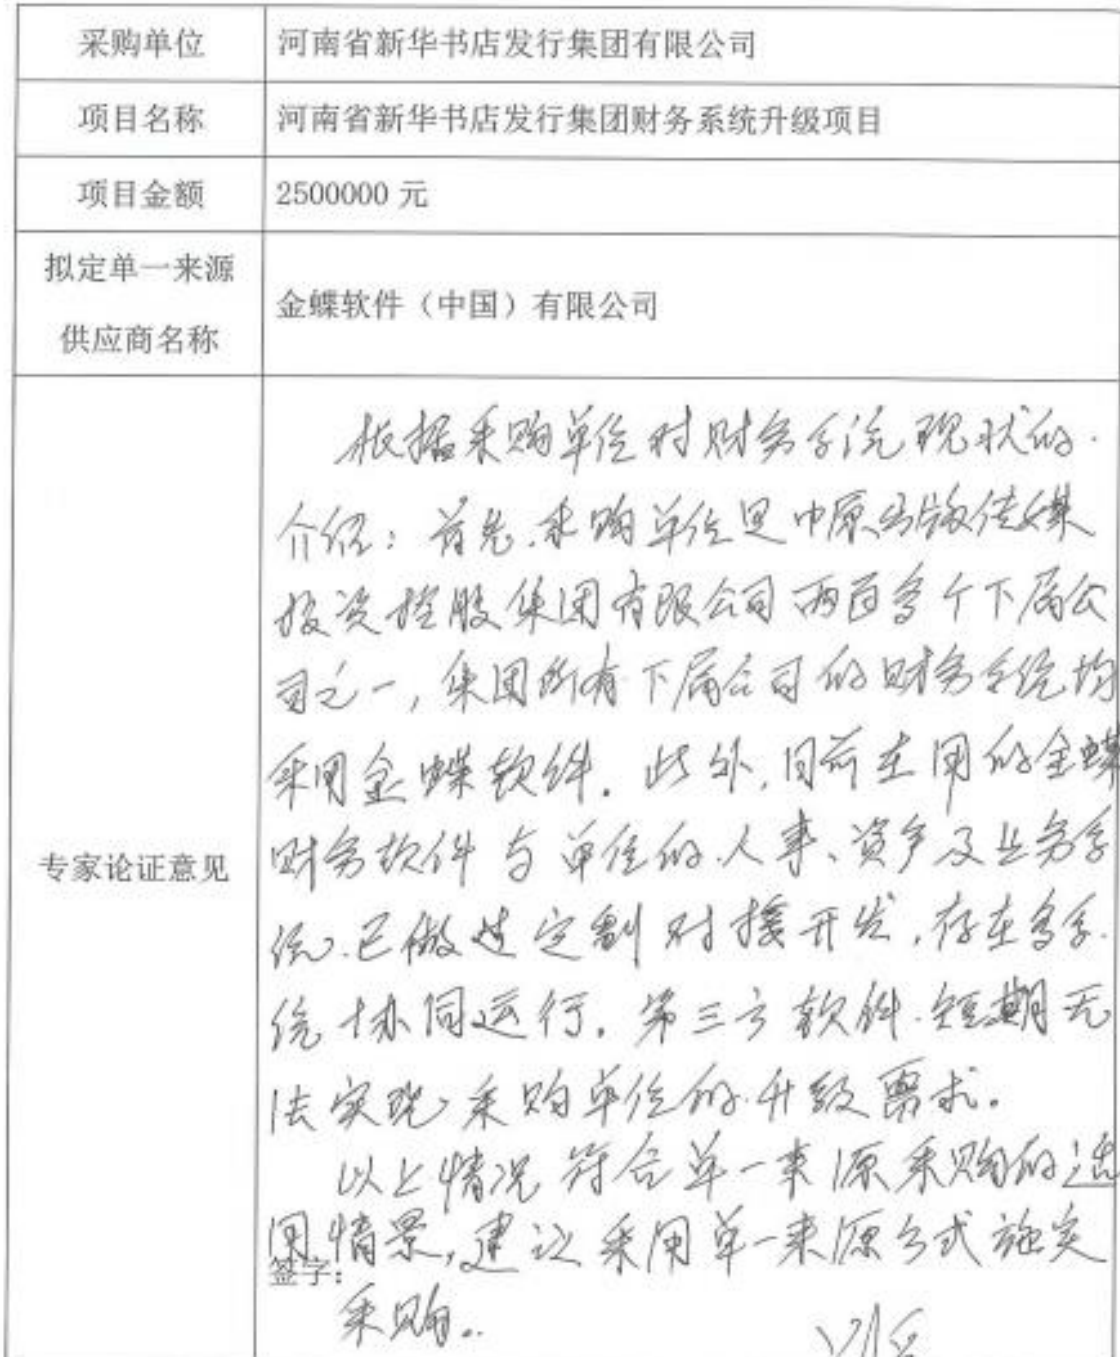 采购单位 河南省新华书店发行集团有限公司
项目名称 河南省新华书店发行集团财务系统升级项目
项目金额 2500000 元
拟定单一来源
供应商名称
金蝶软件（中国）有限公司
专家论证意见
根据采购单位对财务系统现状的
介绍：首先.采购单位是中原出版传媒
投资控股集团有限公司两百多个下属公
司之一，集团所有下属公司的财务系统均
采用金蝶软件。此外，目前在用的金蝶
财务软件与单位的人事、资产及业务系
统.已做过定制对接开发，存在多系
统协同运行。第三方软件短期无
法实现采购单位的升级需求。
以上情况符合单一来源采购的适
用情景，建议采用单一来源方式施实
签字：
采购。
刘